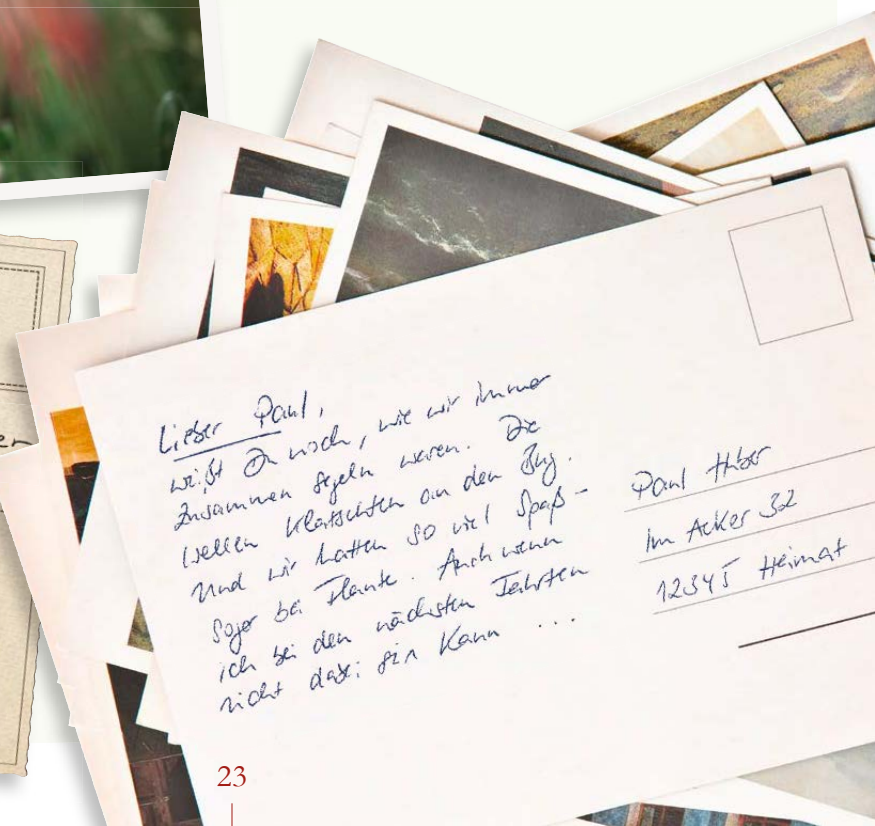 er
Lieber Paul,
weißt Du noch, wie wir immer
zusammen segeln waren. Die
Wellen klatschten an den Bug.
Und wir hatten so viel Spaß –
sogar bei Flaute. Auch wenn
ich bei den nächsten Fahrten
nicht dabei sein kann ...
Paul Huber
Im Acker 32
12345 Heimat
23